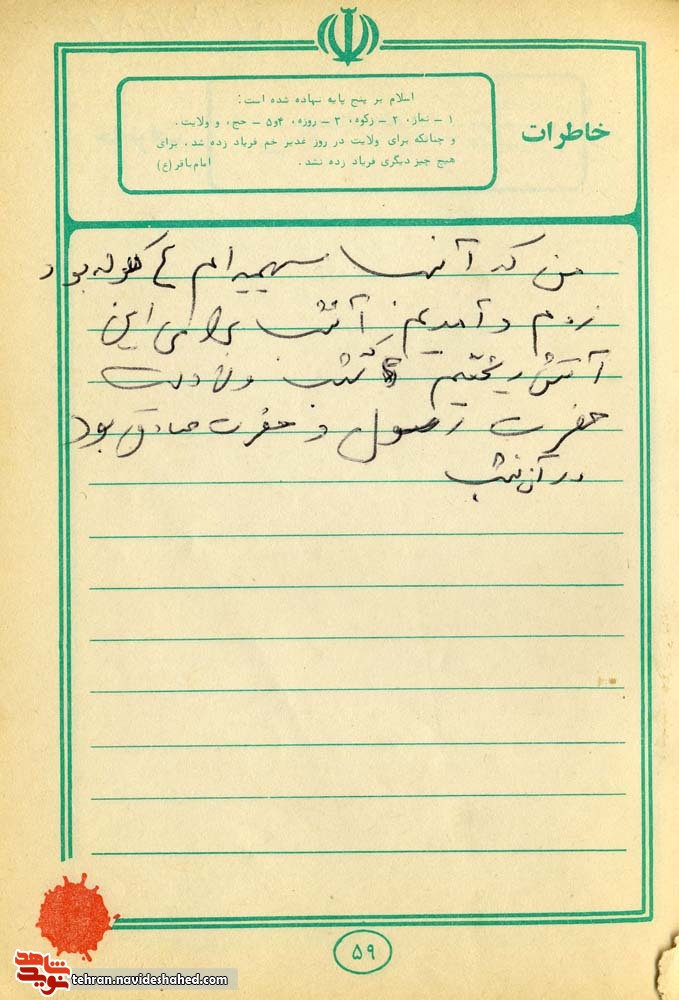 اسلام بر پنج پایه نهاده شده است:
۱ – نماز، ۲ – زکوه، ۳ – روزه، ۴و۵ – حج، و ولایت.
و چنانکه برای ولایت در روز غدیر خم فریاد زده شد، برای
هیچ چیز دیگری فریاد زده نشد. امام باقر(ع)
خاطرات
من که آنها سهمیه ام ۴ گلوله بود
زدم و آمدیم آنشب برای این
آتش ریختیم شب ولادت
حضرت رسول و حضرت صادق بود
در آن شب
۵۹
نوید شاهد
tehran.navideshahed.com